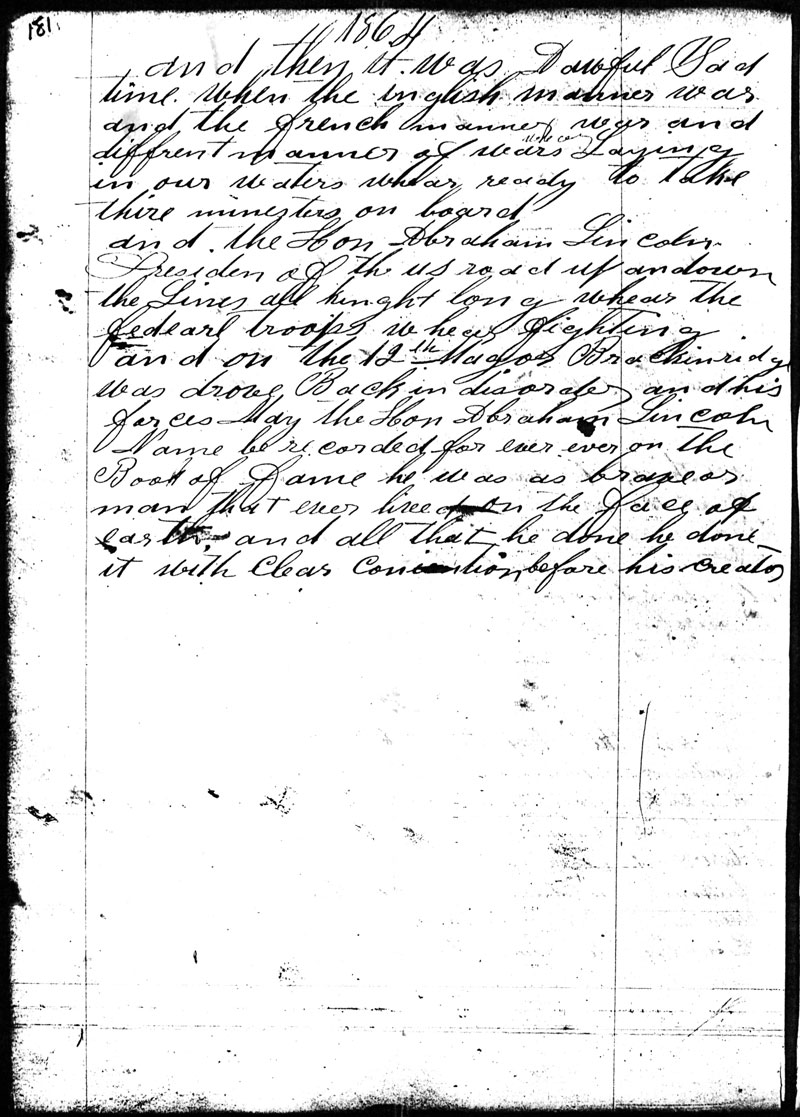 181
1864
and then it was Dawful Sad
time when the english manner war
and the french manner war and
diffrent manner of wars Laying
in our waters whear ready to take
thire minesters on board
and the Hon Abraham Lincoln
Presiden of the us road up andown
the Lines all hinght long whear the
fedearl troops whear fighting
and on the 12th Magor Brackinridge
was drove Back in disorder and his
forces May the Hon Abraham Lincoln
Name be recorded for ever ever on the
Book of Fame he was as brave or
man that ever lived on the face of
earth and all that he done he done
it with Clear before his creator